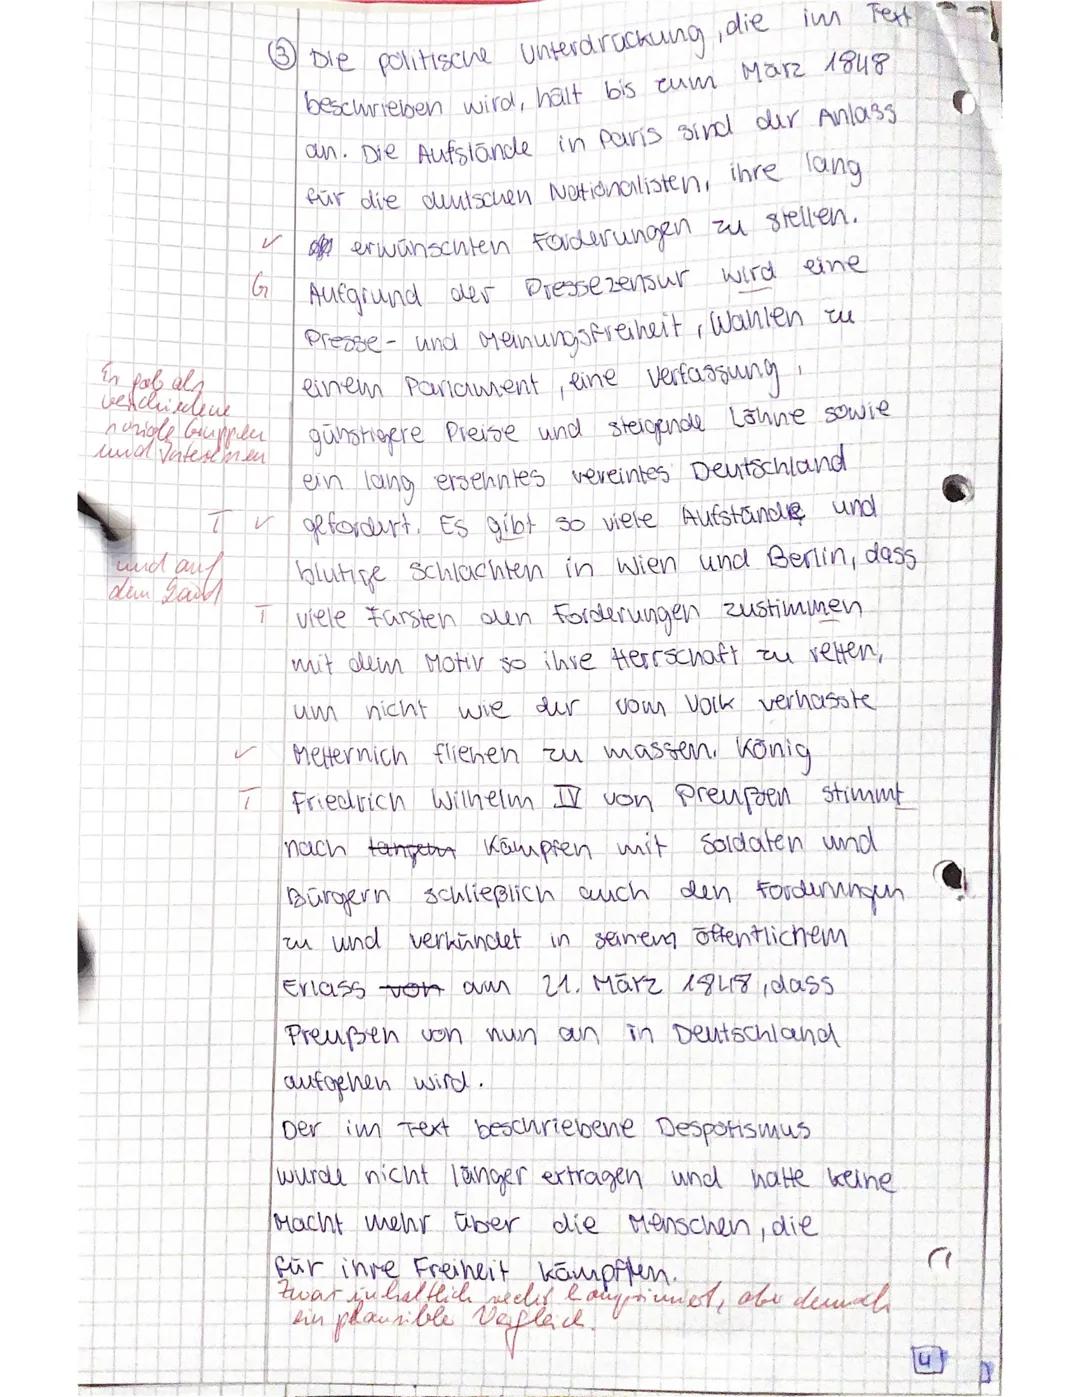 ③ Die politische Unterdrückung, die im Text
beschrieben wird, hält bis zum März 1848
an. Die Aufstände in Paris sind der Anlass
für die deutschen Nationalisten, ihre lang
✓ erwünschten Forderungen zu stellen.
G Aufgrund der Pressezensur wird eine
Presse- und Meinungsfreiheit, Wahlen zu
einem Parlament, eine Verfassung,
günstigere Preise und steigende Löhne sowie
ein lang ersehntes vereintes Deutschland
Es gab als
verschiedene
soziale Gruppen
und Interessen
T ✓ gefordert. Es gibt so viele Aufstände und
blutige Schlachten in Wien und Berlin, dass
und auf
dem Land
T viele Fürsten den Forderungen zustimmen
mit dem Motiv so ihre Herrschaft zu retten,
um nicht wie der vom Volk verhasste
✓ Metternich fliehen zu müssen. König
T Friedrich Wilhelm IV von Preußen stimmt
nach langem Kämpfen mit Soldaten und
Bürgern schließlich auch den Forderungen
zu und verkündet in seinem öffentlichem
Erlass von am 21. März 1848, dass
Preußen von nun an in Deutschland
aufgehen wird.
Der im Text beschriebene Despotismus
wurde nicht länger ertragen und hatte keine
Macht mehr über die Menschen, die
für ihre Freiheit kämpften.
Zwar inhaltlich recht komprimiert, aber dennoch
ein plausibler Vergleich.
4